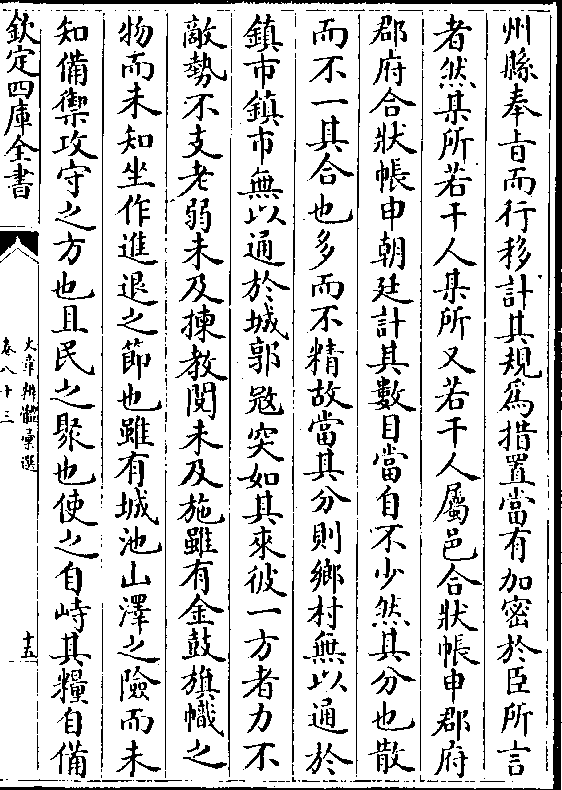 州縣奉㫖而行移計其規為措置當有加密於臣所言
者然某所若干人某所又若干人屬邑合狀帳申郡府
郡府合狀帳申朝廷計其數目當自不少然其分也散
而不一其合也多而不精故當其分則鄉村無以通於
鎮市鎮市無以通於城郭冦突如其來彼一方者力不
敵勢不支老弱未及揀教閱未及施雖有金鼓旗幟之
物而未知坐作進退之節也雖有城池山澤之險而未
知備禦攻守之方也且民之聚也使之自峙其糧自備
欽定四庫全書
文章辨體彙選
卷八十三
十五